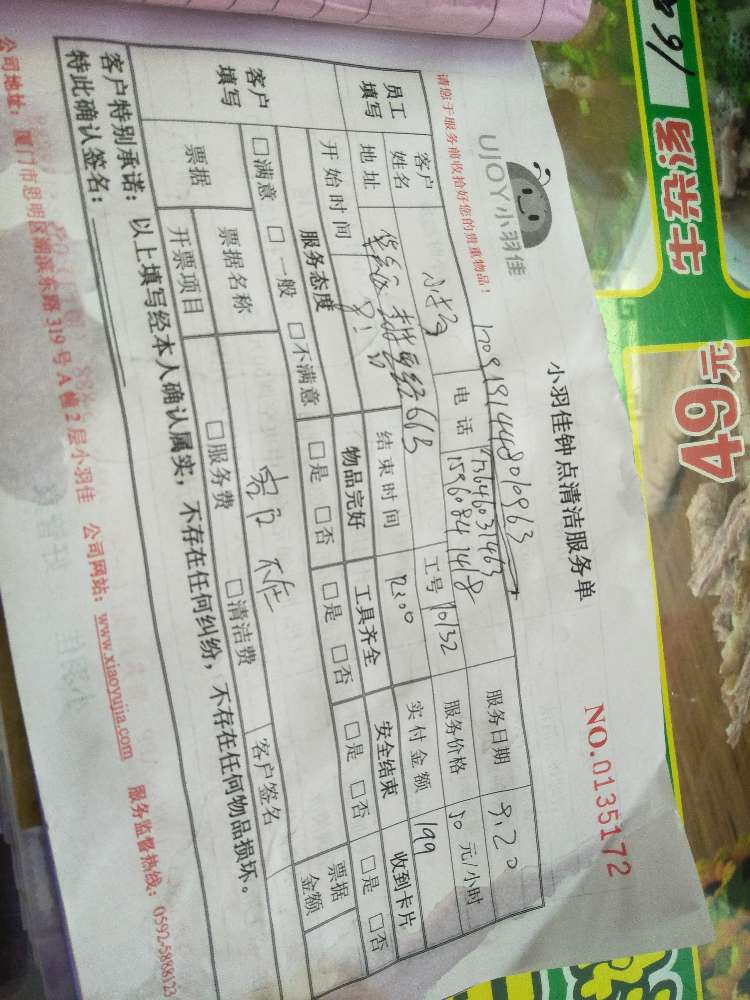 UJOY小羽佳
小羽佳钟点清洁服务单
NO.0135172
请您于服务前收拾好您的贵重物品！
员工填写
客户姓名
电话
15960841418
工号
70132
服务日期
9.20
地址
613
服务价格
50 元/小时
开始时间
结束时间
12:00
实付金额
199
客户填写
服务态度 物品完好 工具齐全 安全结束 收到卡片
□满意 □一般 □不满意 □是 □否 □是 □否 □是 □否 □是 □否
票据
票据名称
客户 不在
客户签名
票据金额
开票项目
□服务费 □清洁费
客户特别承诺：以上填写经本人确认属实，不存在任何纠纷，不存在任何物品损坏。
特此确认签名：
公司地址：厦门市思明区湖滨东路319号A幢2层小羽佳 公司网站：www.xiaoyujia.com 服务监督热线：0592-5888123
49元